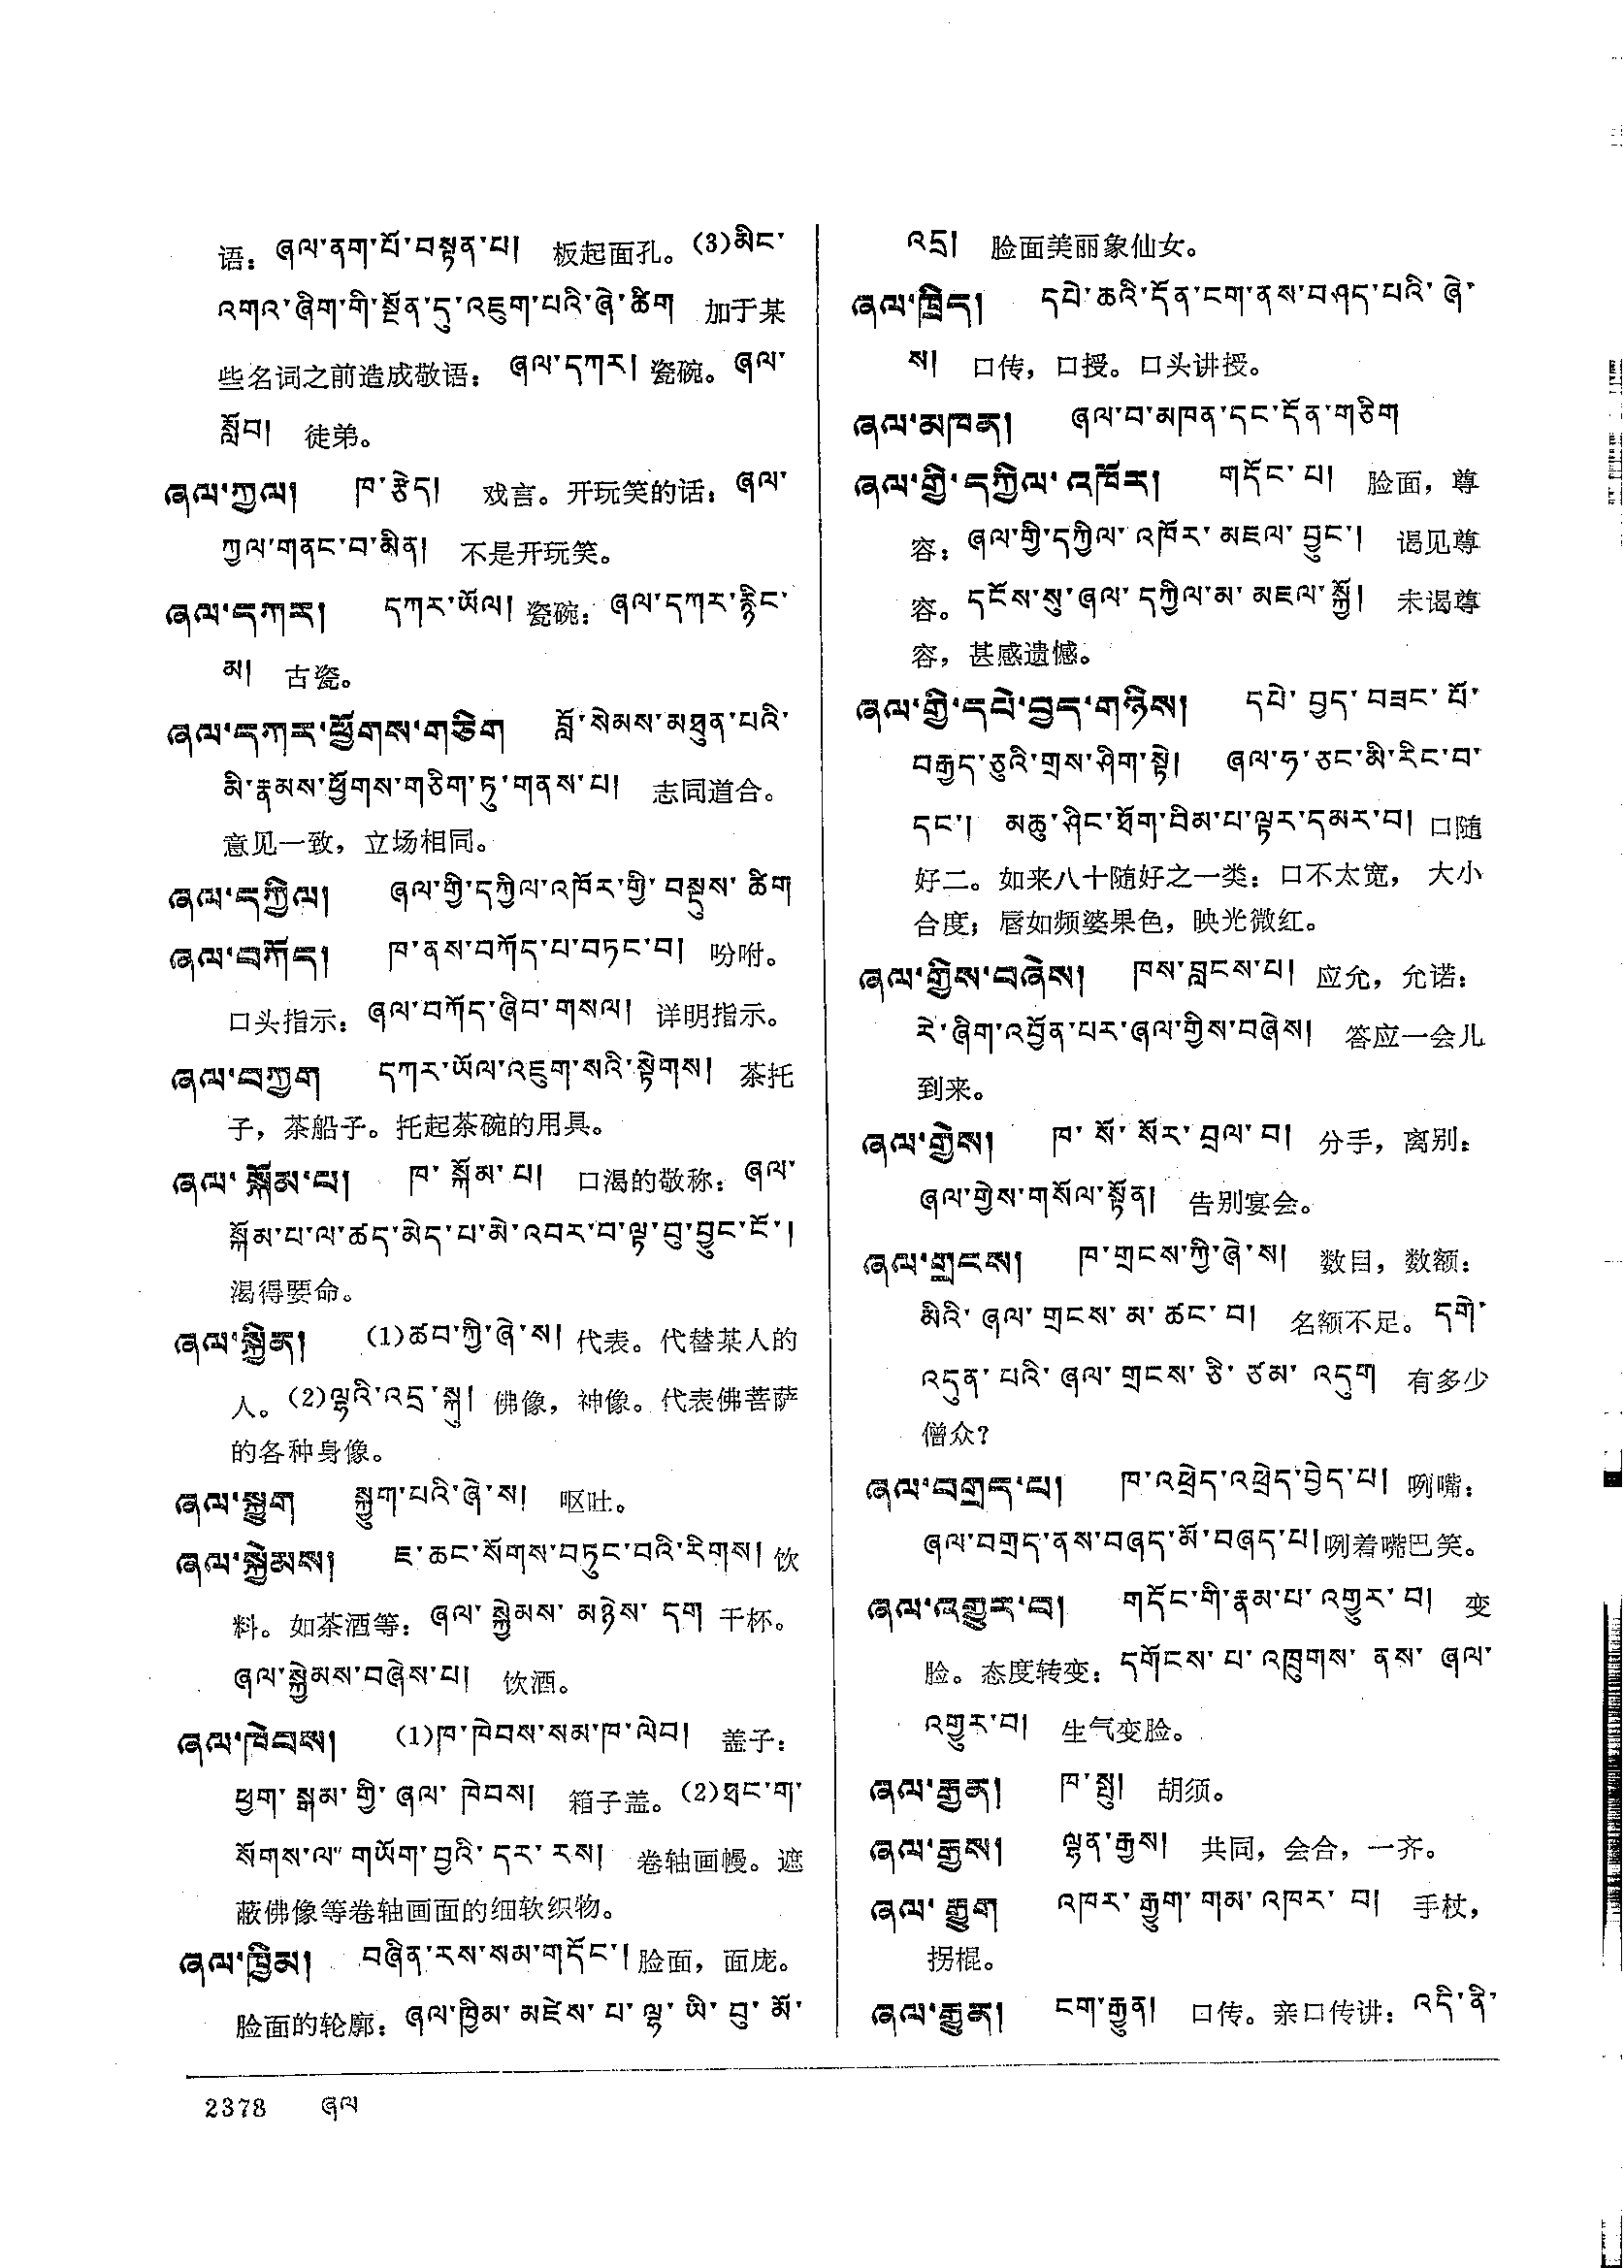 语：ཞལ་ནག་པོ་བསྟན་པ།  板起面孔。(3)མིང་
འགའ་ཞིག་གི་སྔོན་དུ་འཇུག་པའི་ཞེ་ཚིག 加于某
些名词之前造成敬语：ཞལ་དཀར།瓷碗。ཞལ་
སློབ།  徒弟。
ཞལ་ཀྱལ།  ཁ་རྩེད།  戏言。开玩笑的话：ཞལ་
ཀྱལ་གནང་བ་མིན།  不是开玩笑。
ཞལ་དཀར།  དཀར་ཡོལ།瓷碗：ཞལ་དཀར་རྙིང་
མ།  古瓷。
ཞལ་དཀར་ཕྱོགས་གཅིག  བློ་སེམས་མཐུན་པའི་
མི་རྣམས་ཕྱོགས་གཅིག་ཏུ་གནས་པ།  志同道合。
意见一致，立场相同。
ཞལ་དཀྱིལ།  ཞལ་གྱི་དཀྱིལ་འཁོར་གྱི་བསྡུས་ཚིག
ཞལ་བཀོད།  ཁ་ནས་བཀོད་པ་བཏང་བ།  吩咐。
口头指示：ཞལ་བཀོད་ཞིབ་གསལ།  详明指示。
ཞལ་བཀྱག  དཀར་ཡོལ་འཇུག་སའི་སྟེགས།  茶托
子，茶船子。托起茶碗的用具。
ཞལ་སྐོམ་པ།  ཁ་སྐོམ་པ།  口渴的敬称：ཞལ་
སྐོམ་པ་ལ་ཚད་མེད་པ་མེ་འབར་བ་ལྟ་བུ་བྱུང་ངོ་།
渴得要命。
ཞལ་སྐྱིན།  (1)ཚབ་ཀྱི་ཞེ་ས།代表。代替某人的
人。(2)ལྷའི་འདྲ་སྐུ།佛像，神像。代表佛菩萨
的各种身像。
ཞལ་སྐྱུག  སྐྱུག་པའི་ཞེ་ས།  呕吐。
ཞལ་སྐྱེམས།  ཇ་ཆང་སོགས་བཏུང་བའི་རིགས།饮
料。如茶酒等：ཞལ་སྐྱེམས་མཉེས་དག 干杯。
ཞལ་སྐྱེམས་བཞེས་པ།  饮酒。
ཞལ་ཁེབས།  (1)ཁ་ཁེབས་སམ་ཁ་ལེབ།  盖子：
ཕྱག་སྒམ་གྱི་ཞལ་ཁེབས།  箱子盖。(2)ཐང་ག་
སོགས་ལ་གཡོག་བྱའི་དར་རས།  卷轴画幔。遮
蔽佛像等卷轴画面的细软织物。
ཞལ་ཁྱིམ།  བཞིན་རས་སམ་གདོང་།脸面，面庞。
脸面的轮廓：ཞལ་ཁྱིམ་མཛེས་པ་ལྷ་ཡི་བུ་མོ་
འདྲ།  脸面美丽象仙女。
ཞལ་ཁྲིད།  དཔེ་ཆའི་དོན་ངག་ནས་བཤད་པའི་ཞེ་
ས།  口传，口授。口头讲授。
ཞལ་མཁན།  ཞལ་བ་མཁན་དང་དོན་གཅིག
ཞལ་གྱི་དཀྱིལ་འཁོར།  གདོང་པ།  脸面，尊
容：ཞལ་གྱི་དཀྱིལ་འཁོར་མཇལ་བྱུང་།  谒见尊
容。དངོས་སུ་ཞལ་དཀྱིལ་མ་མཇལ་སྐྱོ།  未谒尊
容，甚感遗憾。
ཞལ་གྱི་དཔེ་བྱད་གཉིས།  དཔེ་བྱད་བཟང་པོ་
བརྒྱད་ཅུའི་གྲས་ཤིག་སྟེ།  ཞལ་ཧ་ཅང་མི་རིང་བ་
དང་།  མཆུ་ཤིང་ཐོག་བིམ་པ་ལྟར་དམར་བ།口随
好二。如来八十随好之一类：口不太宽，大小
合度；唇如频婆果色，映光微红。
ཞལ་གྱིས་བཞེས།  ཁས་བླངས་པ།  应允，允诺：
རེ་ཞིག་འབྱོན་པར་ཞལ་གྱིས་བཞེས།  答应一会儿
到来。
ཞལ་གྱེས།  ཁ་སོ་སོར་བྲལ་བ།  分手，离别：
ཞལ་གྱེས་གསོལ་སྟོན།  告别宴会。
ཞལ་གྲངས།  ཁ་གྲངས་ཀྱི་ཞེ་ས།  数目，数额：
མིའི་ཞལ་གྲངས་མ་ཚང་བ།  名额不足。དགེ་
འདུན་པའི་ཞལ་གྲངས་ཅི་ཙམ་འདུག  有多少
僧众？
ཞལ་བགྲད་པ།  ཁ་འཕྲེད་འཕྲེད་བྱེད་པ།  咧嘴：
ཞལ་བགྲད་ནས་བཞད་མོ་བཞད་པ།咧着嘴巴笑。
ཞལ་འགྱུར་བ།  གདོང་གི་རྣམ་པ་འགྱུར་བ།  变
脸。态度转变：དགོངས་པ་འཁྲུགས་ནས་ཞལ་
འགྱུར་བ།  生气变脸。
ཞལ་རྒྱན།  ཁ་སྤུ།  胡须。
ཞལ་རྒྱས།  ལྷན་རྒྱས།  共同，会合，一齐。
ཞལ་རྒྱུག  འཁར་རྒྱུག་གམ་འཁར་བ།  手杖，
拐棍。
ཞལ་རྒྱུན།  ངག་རྒྱུན།  口传。亲口传讲：འདི་ནི་
2378  ཞལ